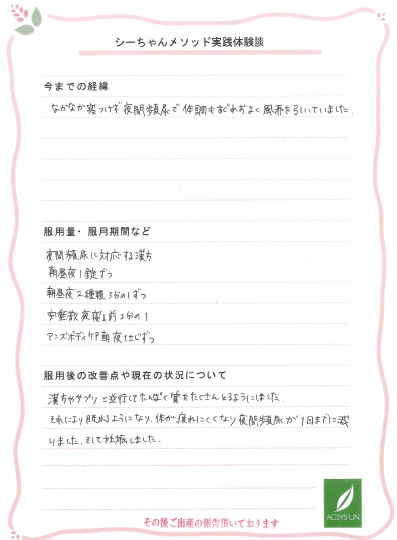 シーちゃんメソッド実践体験談
今までの経緯
なかなか寝つけず夜間頻尿で体調もすぐれずよく風邪を引いていました。
服用量・服用期間など
夜間頻尿に対応する漢方
朝昼夜1錠ずつ
朝昼夜2種類3分の1ずつ
安垂散夜寝る前2分の1
アンズボディケア朝夜1さじずつ
服用後の改善点や現在の状況について
漢方やサプリと並行してたんぱく質をたくさんとるようにしました。
それにより眠れるようになり、体が疲れにくくなり夜間頻尿が1回までに減
りました。そして妊娠しました。
その後ご出産の報告頂いております
ACSYS UN